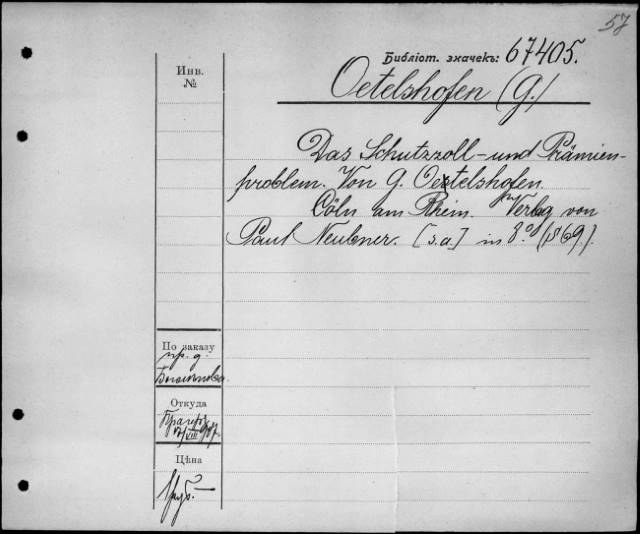 57
Библіот. значекъ: 67405.
Инв.
№
Oetelshofen (G.)
Das Schutzzoll- und Prämien-
problem. Von G. Oetelshofen.
Cöln am Rhein. Verlag von
Paul Neubner. [s.a.] in 8.º (p69.).
По заказу
пр. д.
Откуда
VIII 907
Цѣна
1 руб. —